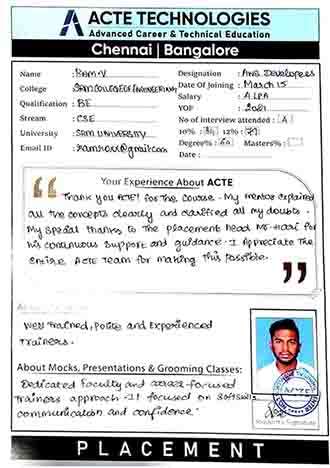 ACTE TECHNOLOGIES
Advanced Career & Technical Education
Chennai | Bangalore
Name : RAM V
Designation : AWS Developer
College : SRM COLLEGE OF ENGINEERING
Date Of Joining : March 15
Qualification : BE
Salary : 4 LPA
Stream : CSE
YOP : 2021
University : SRM UNIVERSITY
No of interview attended : 4
10% : 12% : 79
Email ID :
Degree% : 60 Masters% :
Date :
Your Experience About ACTE
Thank you ACTE! for the course. My mentor explained
all the concepts clearly and clarified all my doubts.
My special thanks to the placement head Mr. Hari for
his continuous support and guidance. I Appreciate the
entire ACTE team for making this possible.
Well Trained, Polite and Experienced
Trainers.
About Mocks, Presentations & Grooming Classes:
Dedicated Faculty and career-focused
trainers approach. I focused on softskills
communication and confidence
Student's Signature
PLACEMENT